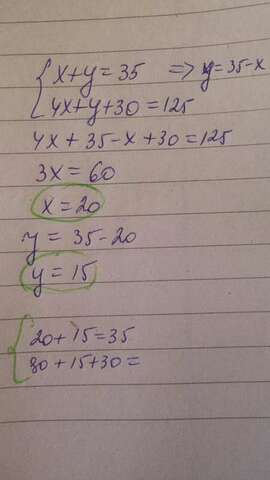 x+y=35 => y=35-x
4x+y+30=125
4x+35-x+30=125
3x=60
x=20
y=35-20
y=15
20+15=35
80+15+30=